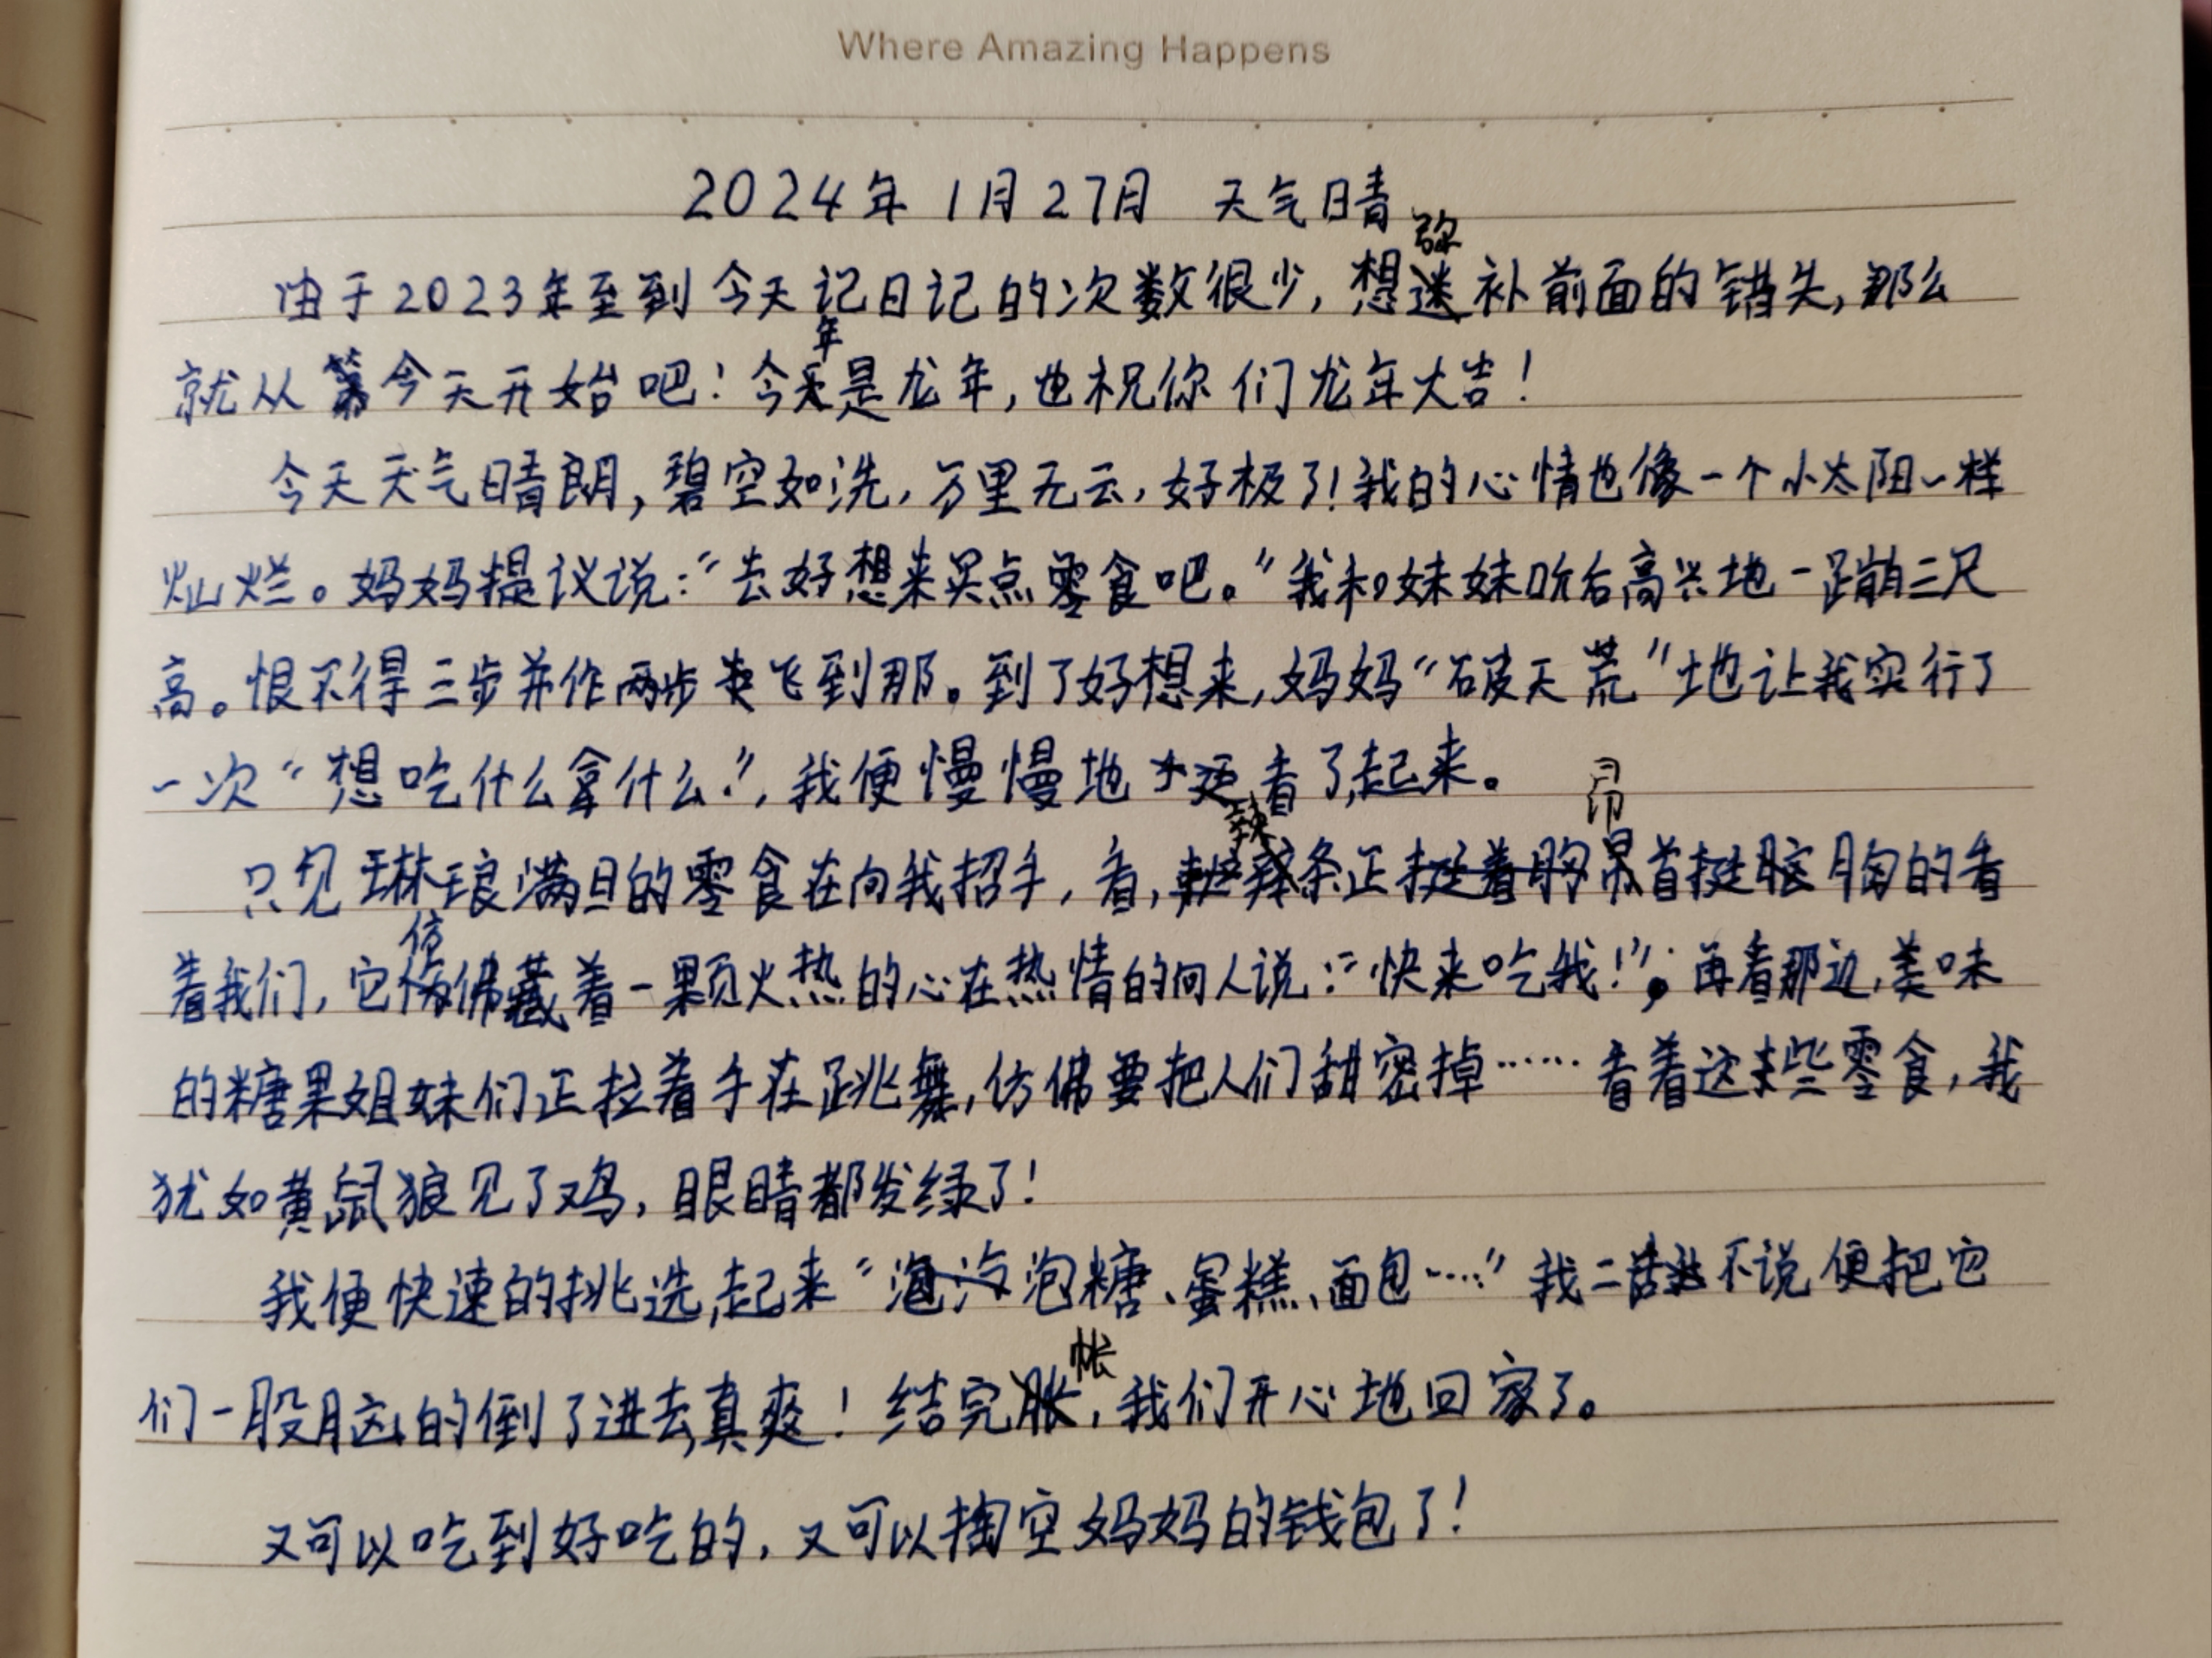 Where Amazing Happens
2024年1月27日 天气晴
由于2023年至到今天记日记的次数很少,想弥补前面的错失,那么
就从今天开始吧!今年是龙年,也祝你们龙年大吉!
今天天气晴朗,碧空如洗,万里无云,好极了!我的心情也像一个小太阳一样
灿烂。妈妈提议说:“去好想来买点零食吧。”我和妹妹听后高兴地一蹦三尺
高。恨不得三步并作两步飞到那。到了好想来,妈妈“破天荒”地让我实行了
一次“想吃什么拿什么”,我便慢慢地看了起来。
只见琳琅满目的零食在向我招手,看,辣条正昂首挺胸的看
着我们,它仿佛藏着一颗火热的心在热情的向人说:“快来吃我!”;再看那边,美味
的糖果姐妹们正拉着手在跳舞,仿佛要把人们甜密掉……看着这些零食,我
犹如黄鼠狼见了鸡,眼睛都发绿了!
我便快速的挑选起来“泡泡糖、蛋糕、面包……”我二话不说便把它
们一股脑的倒了进去,真爽!结完帐,我们开心地回家了。
又可以吃到好吃的,又可以掏空妈妈的钱包了!